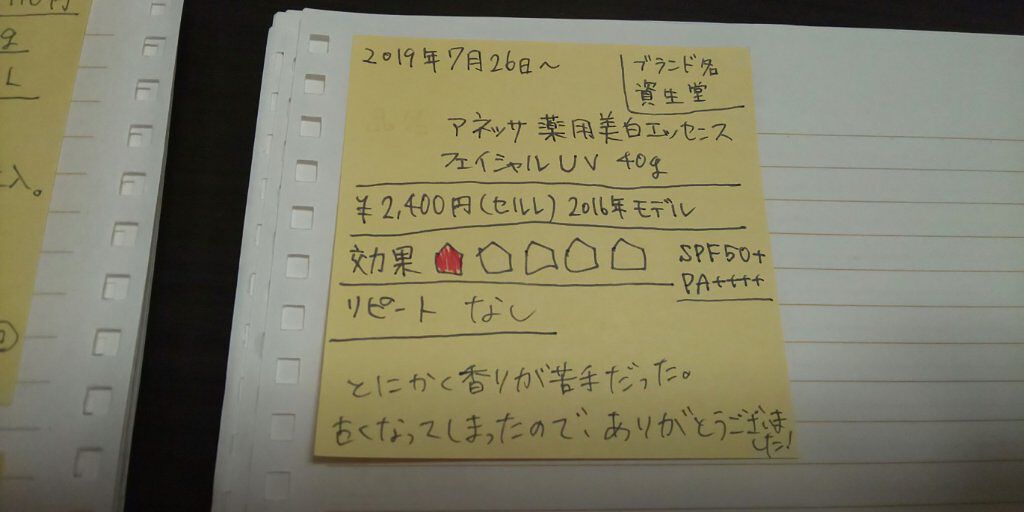 円
g
L
入。
2019年7月26日～
ブランド名
資生堂
アネッサ 薬用美白エッセンス
フェイシャル UV 40g
¥2,400円(セルレ) 2016年モデル
効果
SPF50+
PA++++
リピート なし
とにかく香りが苦手だった。
古くなってしまったので、ありがとうございま
した!